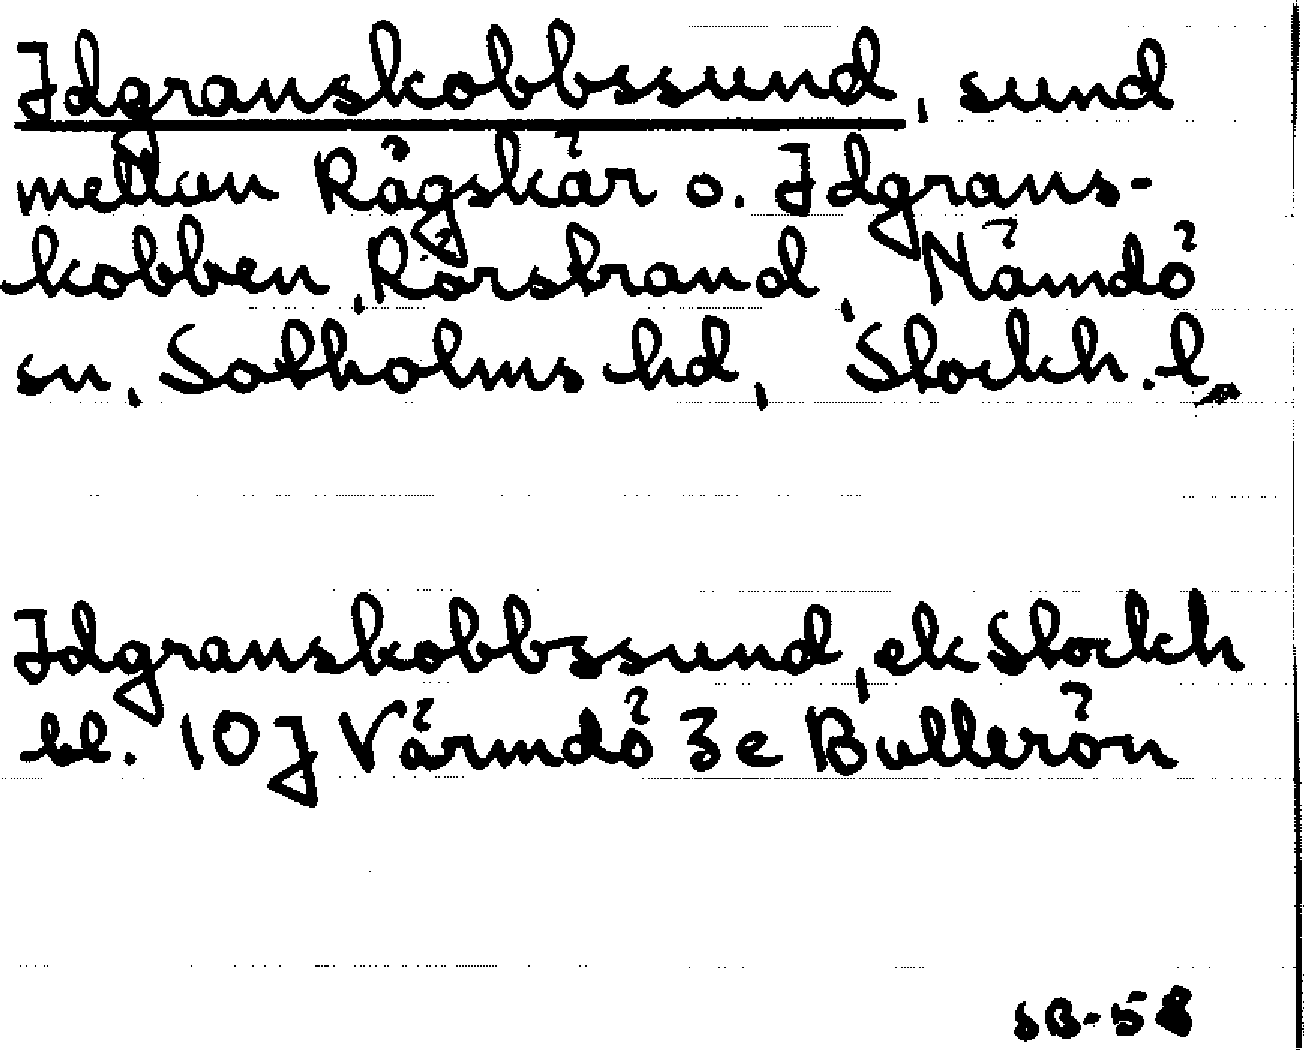 Idgranskobbssund, sund
mellan Rågskär o. Idgrans-
kobben, Rörstrand, Nämdö
sn, Sotholms hd, Stockh. l.
Idgranskobbssund, ek Stockh
bl. 10J Värmdö 3e Bullerön
SB-58